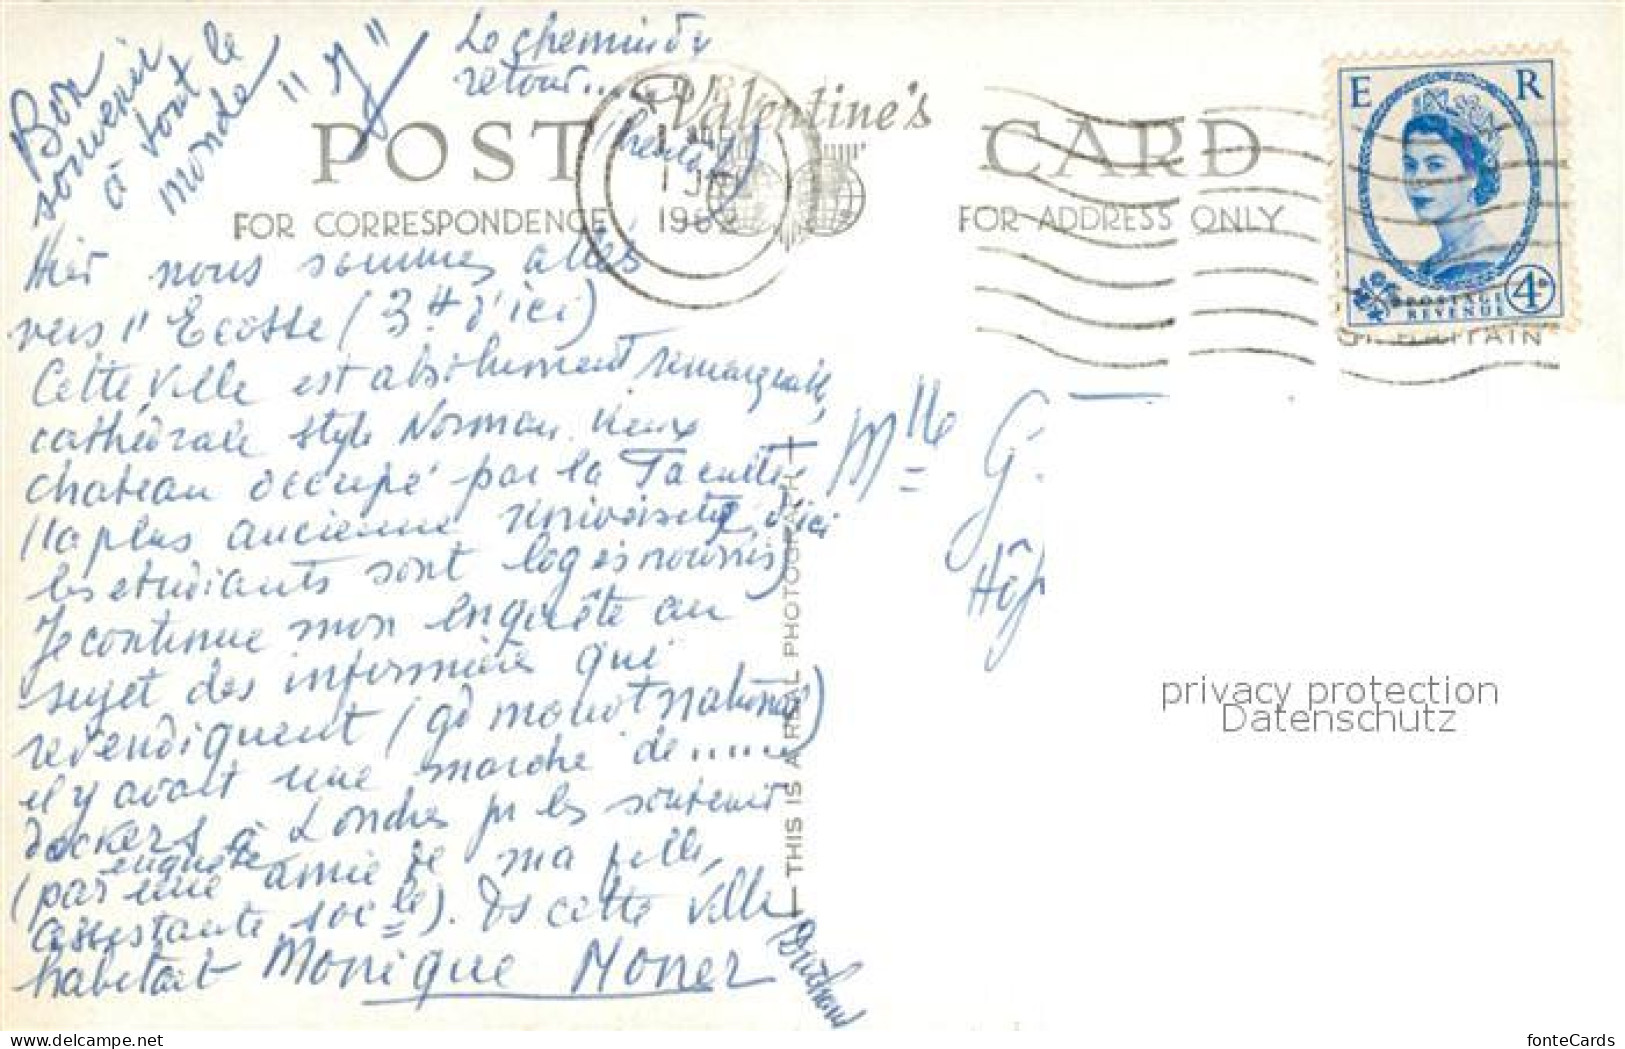 Bon
souvenir
à tout le
monde "
Le chemin du
retour...
Valentine's
POST CARD
FOR CORRESPONDENCE
FOR ADDRESS ONLY
1 JUN
1962
E R
POSTAGE
REVENUE
4D
GT. BRITAIN
Hier nous sommes allés
vers l'Ecosse (3 H d'ici)
Cette ville est absolument remarquable,
cathédrale style Norman, vieux
chateau occupé par la Faculté
(la plus ancienne université d'ici
les étudiants sont logés nourris)
Je continue mon enquête au
sujet des infirmières qui
revendiquent (gd mouvt national)
il y avait une marche de.....
dockers à Londres pr les soutenir
enquête
(par une amie de ma fille,
assistante socle). Ds cette ville
habitait Monique Moner
Mlle G.
Hôp
THIS IS A REAL PHOTOGRAPH
privacy protection
Datenschutz
www.delcampe.net
fonteCards